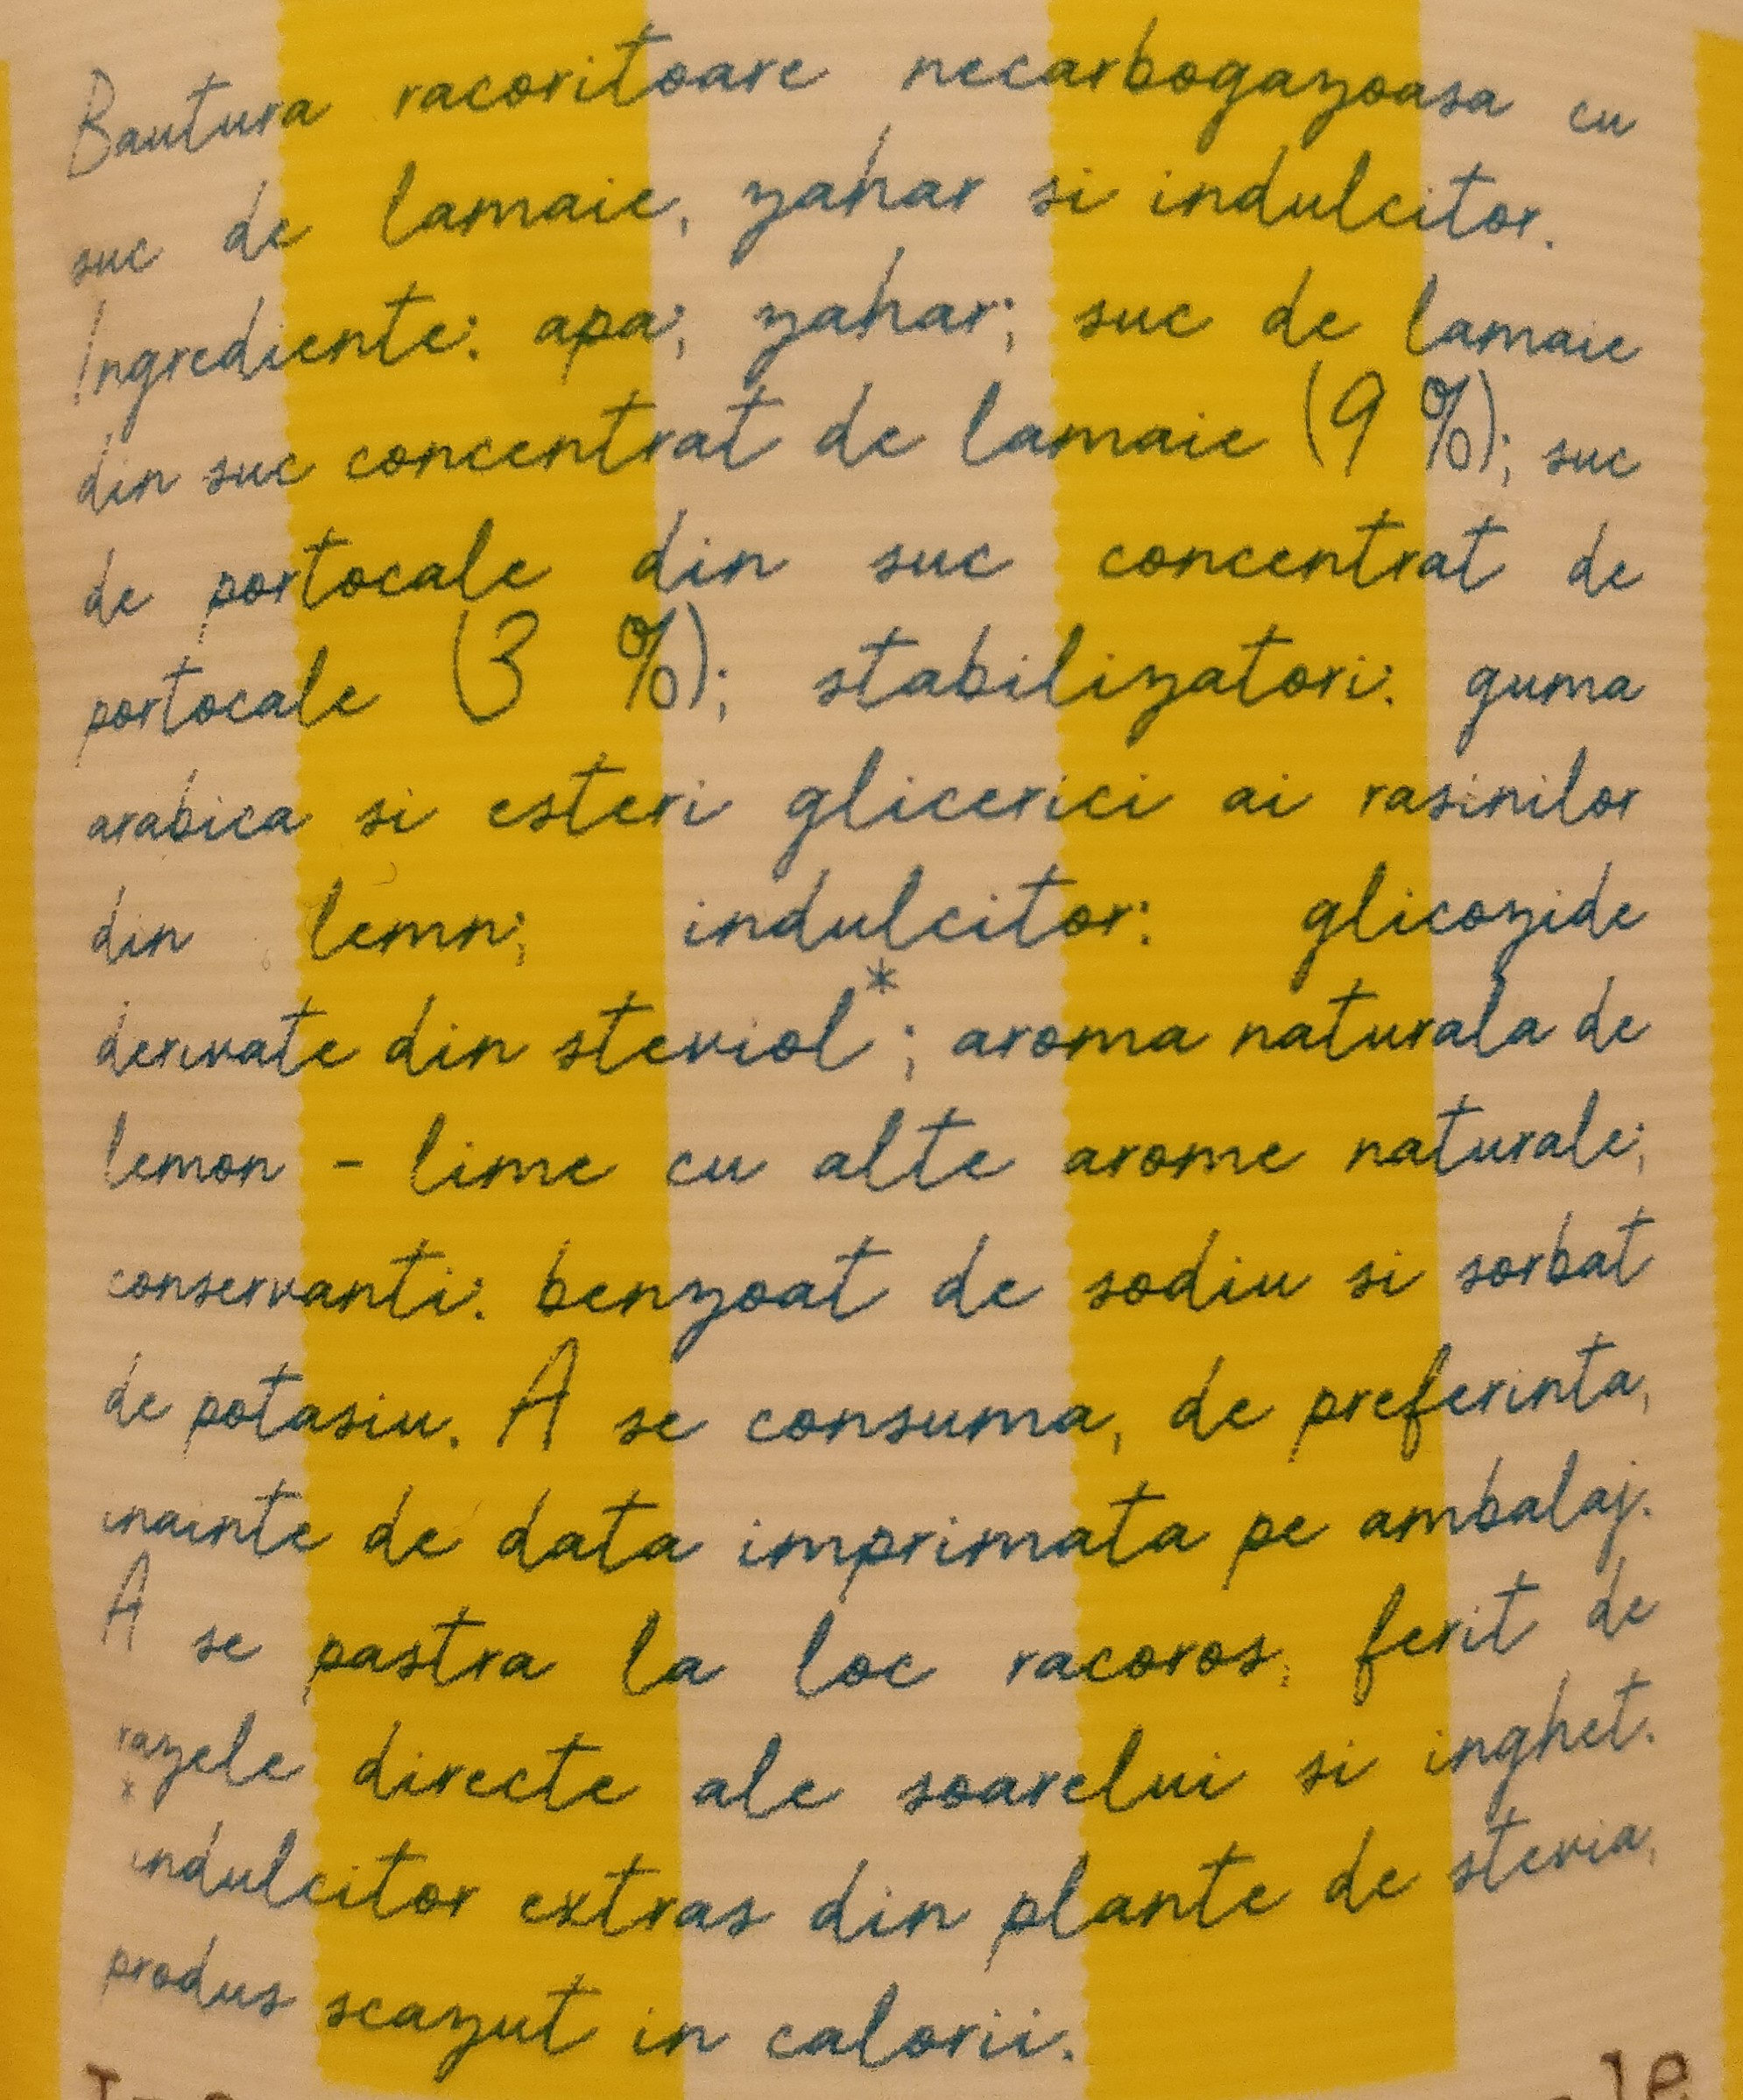 Bautura racoritoare necarbogazoasa cu
suc de lamaie, zahar si indulcitor.
Ingrediente: apa; zahar; suc de lamaie
din suc concentrat de lamaie (9 %); suc
de portocale din suc concentrat de
portocale (3 %); stabilizatori: guma
arabica si esteri glicerici ai rasinilor
din lemn; indulcitor: glicozide
derivate din steviol*; aroma naturala de
lemon - lime cu alte arome naturale;
conservanti: benzoat de sodiu si sorbat
de potasiu. A se consuma, de preferinta,
inainte de data imprimata pe ambalaj.
A se pastra la loc racoros, ferit de
razele directe ale soarelui si inghet.
*
indulcitor extras din plante de stevia,
produs scazut in calorii.